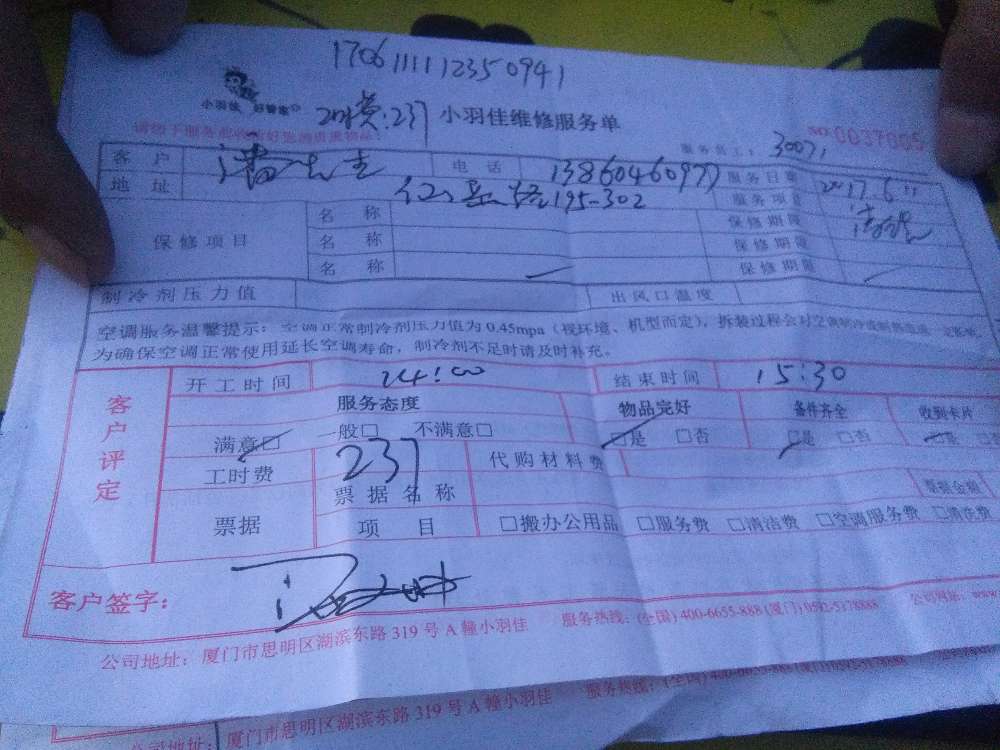 1706111112350941
小羽佳 好管家
237 小羽佳维修服务单
服务员工: 30071 NO:0037005
客户 潘先生 电话 13860460977 服务日期 2017.6.11
地址 仙岳路195-302 服务项目
保修项目 名称 保修期限
名称 保修期限
名称 保修期限
制冷剂压力值 出风口温度
空调服务温馨提示: 空调正常制冷剂压力值为0.45mpa(视环境、机型而定),拆装过程会对空调制冷
为确保空调正常使用延长空调寿命,制冷剂不足时请及时补充。
客户评定
开工时间 14:00 结束时间 15:30
服务态度 物品完好 备件齐全 收到卡片
满意□ 一般□ 不满意□ □是 □否 □是 □否 □是 □否
工时费 237 代购材料费
票据 票据名称 票据金额
项目 □搬办公用品 □服务费 □清洁费 □空调服务费 □清洗费
客户签字:
公司地址: 厦门市思明区湖滨东路319号A幢小羽佳 服务热线: (全国) 400-6655-888 (厦门) 0592-5178888 公司网址: www.
公司地址: 厦门市思明区湖滨东路319号A幢小羽佳 服务热线: (全国) 400-6655-888 (厦门) 0592-5178888